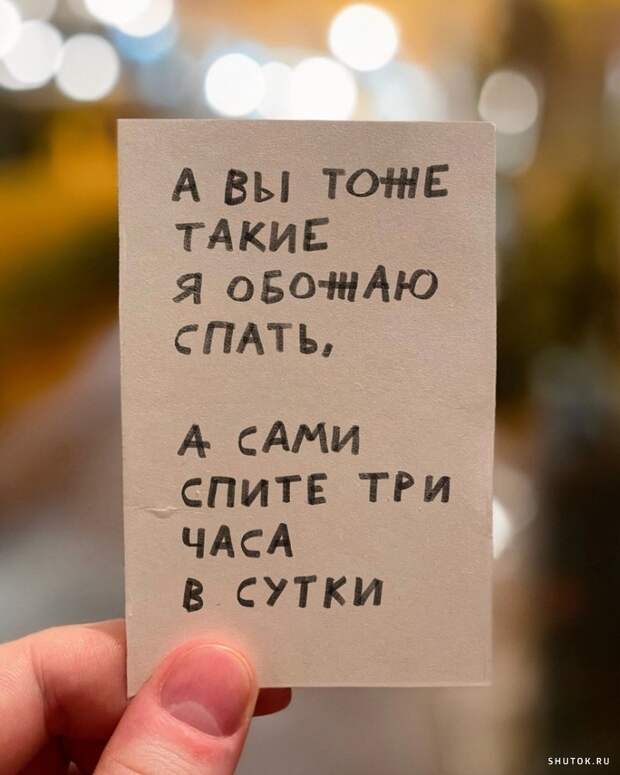 А ВЫ ТОЖЕ
ТАКИЕ
Я ОБОЖАЮ
СПАТЬ,
А САМИ
СПИТЕ ТРИ
ЧАСА
В СУТКИ
SHUTOK.RU